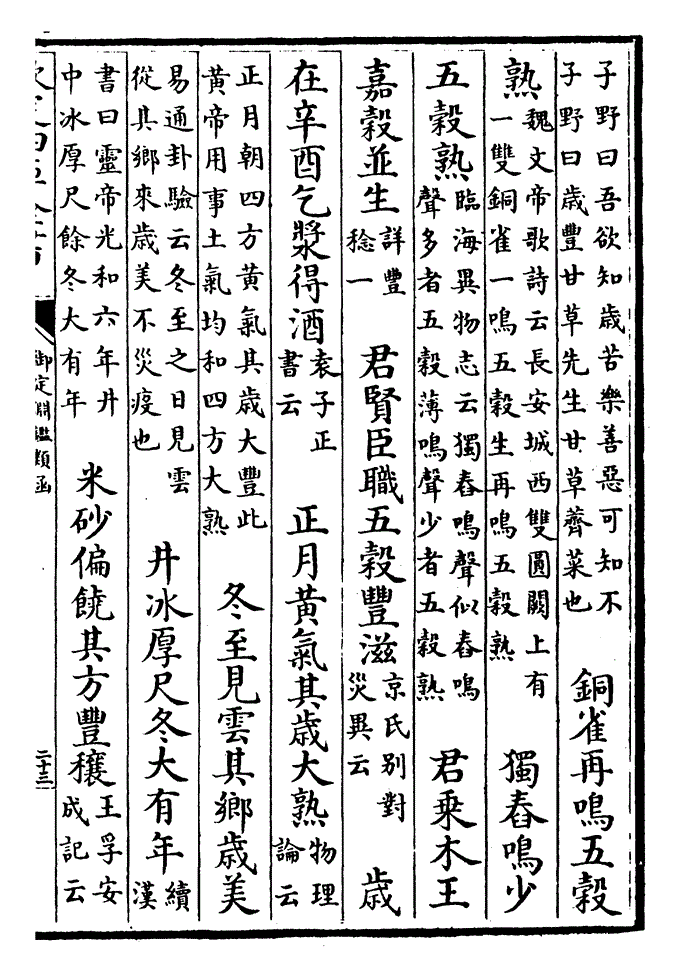 子野曰吾欲知歳苦樂善惡可知不
子野曰歳豐甘草先生甘草薺菜也
銅雀再鳴五穀
熟
魏文帝歌詩云長安城西雙圓闕上有
一雙銅雀一鳴五穀生再鳴五穀熟
獨舂鳴少
五穀熟
臨海異物志云獨舂鳴聲似舂鳴
聲多者五穀薄鳴聲少者五穀熟
君乗木王
嘉穀並生
詳豐
稔一
君賢臣職五穀豐滋
京氏别對
災異云
歳
在辛酉乞漿得酒
袁子正
書云
正月黄氣其歳大熟
物理
論云
正月朝四方黄氣其歳大豐此
黄帝用事土氣均和四方大熟
冬至見雲其鄉歳美
易通卦驗云冬至之日見雲
從其鄉來歳美不災疫也
井冰厚尺冬大有年
續
漢
書曰靈帝光和六年井
中冰厚尺餘冬大有年
米砂偏饒其方豐穰
王孚安
成記云
御定淵鑑類函
二十三